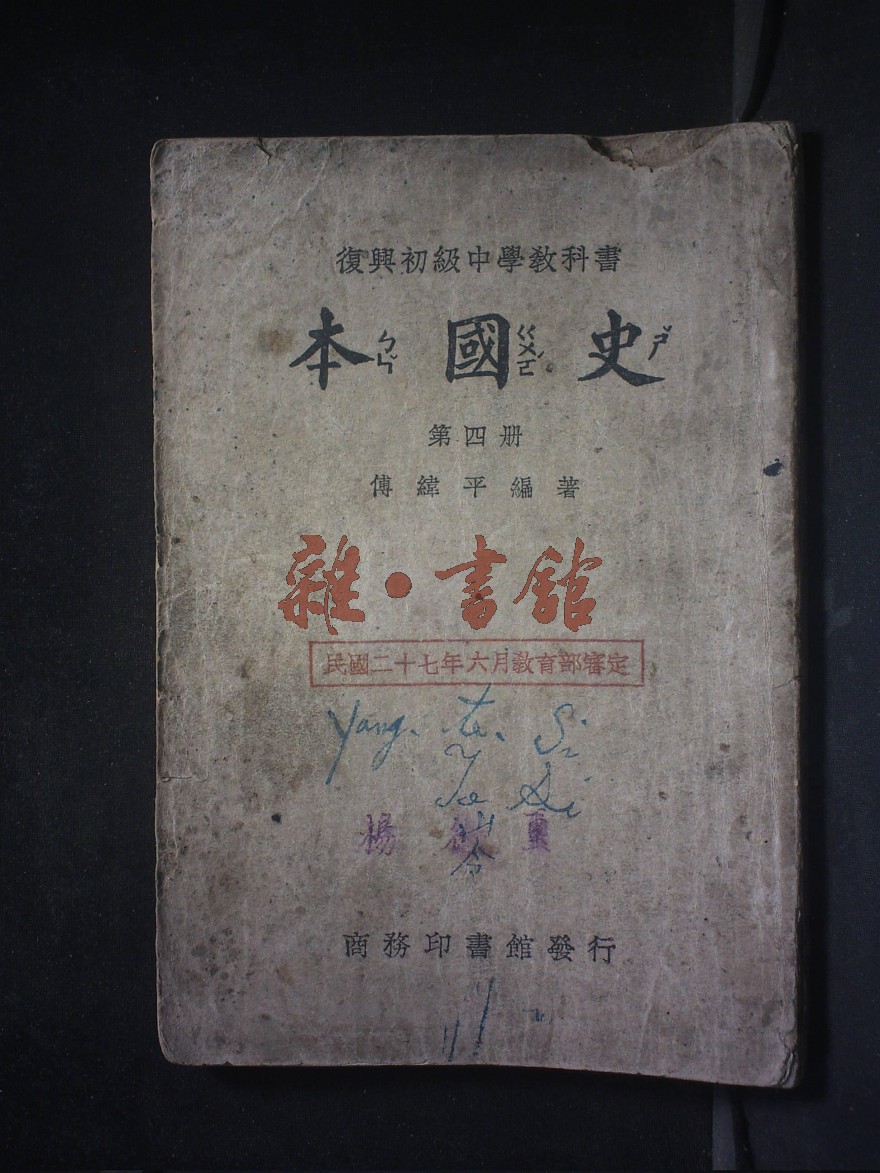 復興初級中學教科書
本ㄅㄣˇ 國ㄍㄨㄛˊ 史ㄕˇ
第四册
傅緯平編著
雜·書館
民國二十七年六月教育部審定
Yang. te. Si
De Si
楊
商務印書館發行